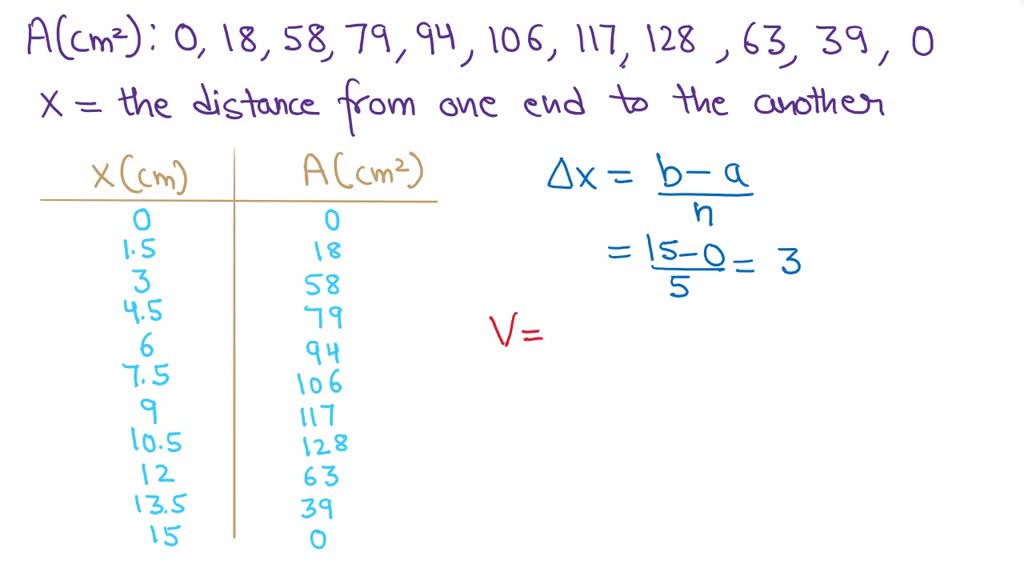 A(cm²): 0, 18, 58, 79, 94, 106, 117, 128, 63, 39, 0
X = the distance from one end to the another
X(cm) A(cm²)
0 0
1.5 18
3 58
4.5 79
6 94
7.5 106
9 117
10.5 128
12 63
13.5 39
15 0
Δx = b-a/n
= 15-0/5 = 3
V=